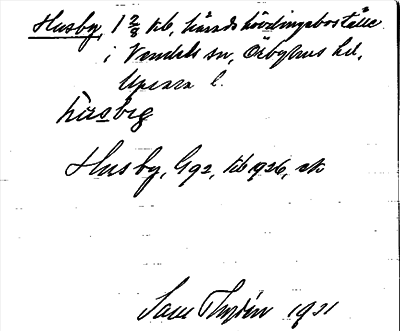 Husby, 1 2/8 tb, häradshövdingeboställe
i Vendels sn, Örbyhus hd,
Upsala l.
husby
Husby, G 92, tb 1926, ek
Sam Thyrén 1921